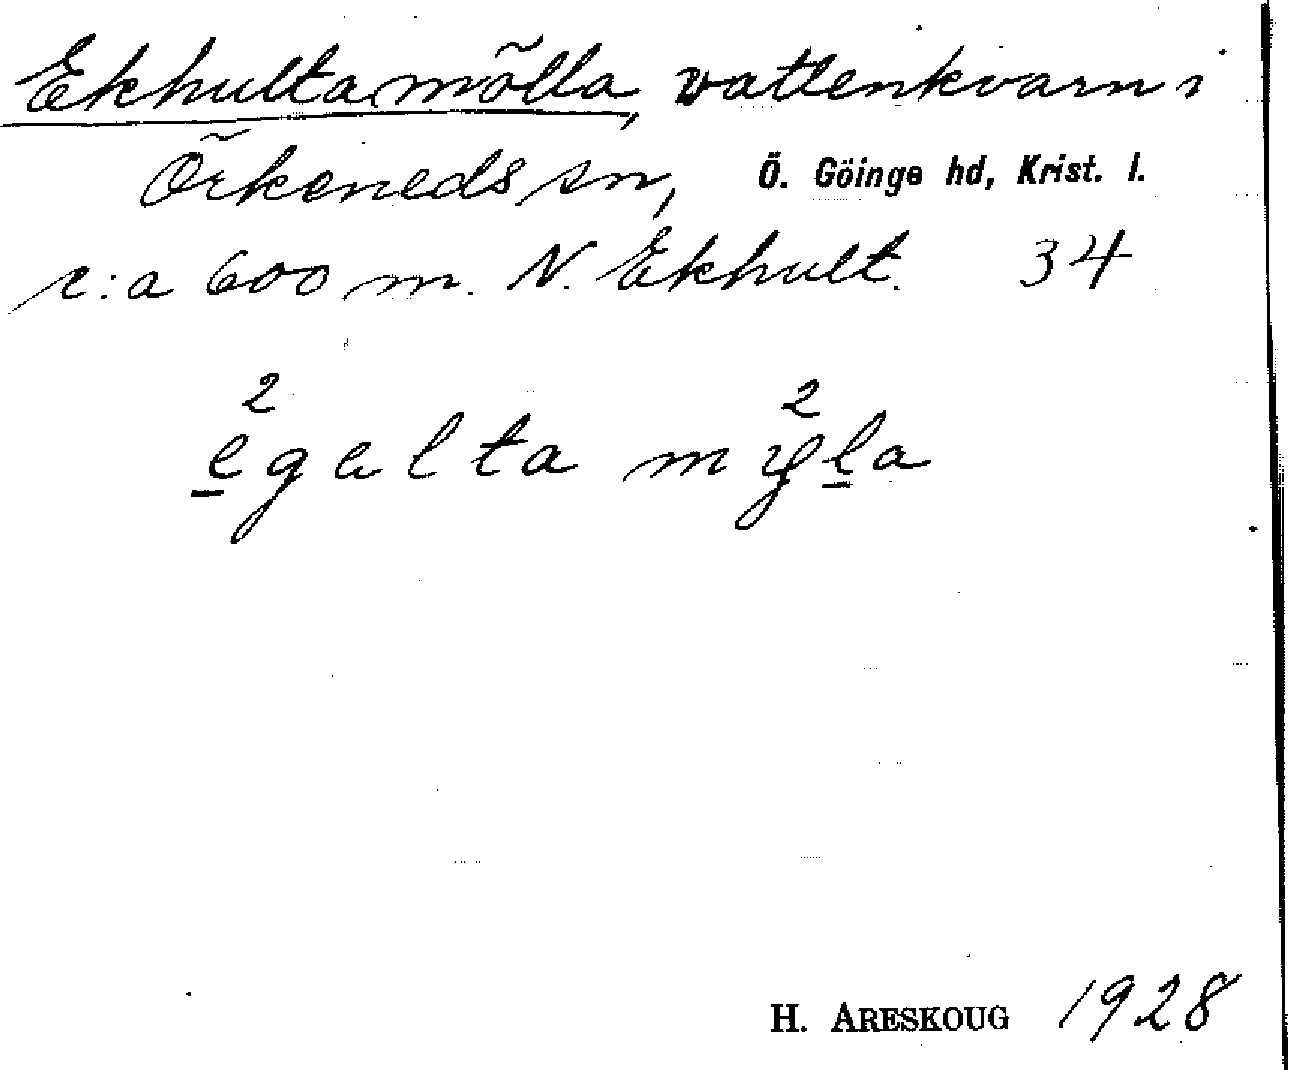 Ekhultamölla, vattenkvarn i
Örkeneds sn, Ö. Göinge hd, Krist. l.
c:a 600 m. N. Ekhult. 34
2 2
e̲galta myl̲a
H. ARESKOUG 1928